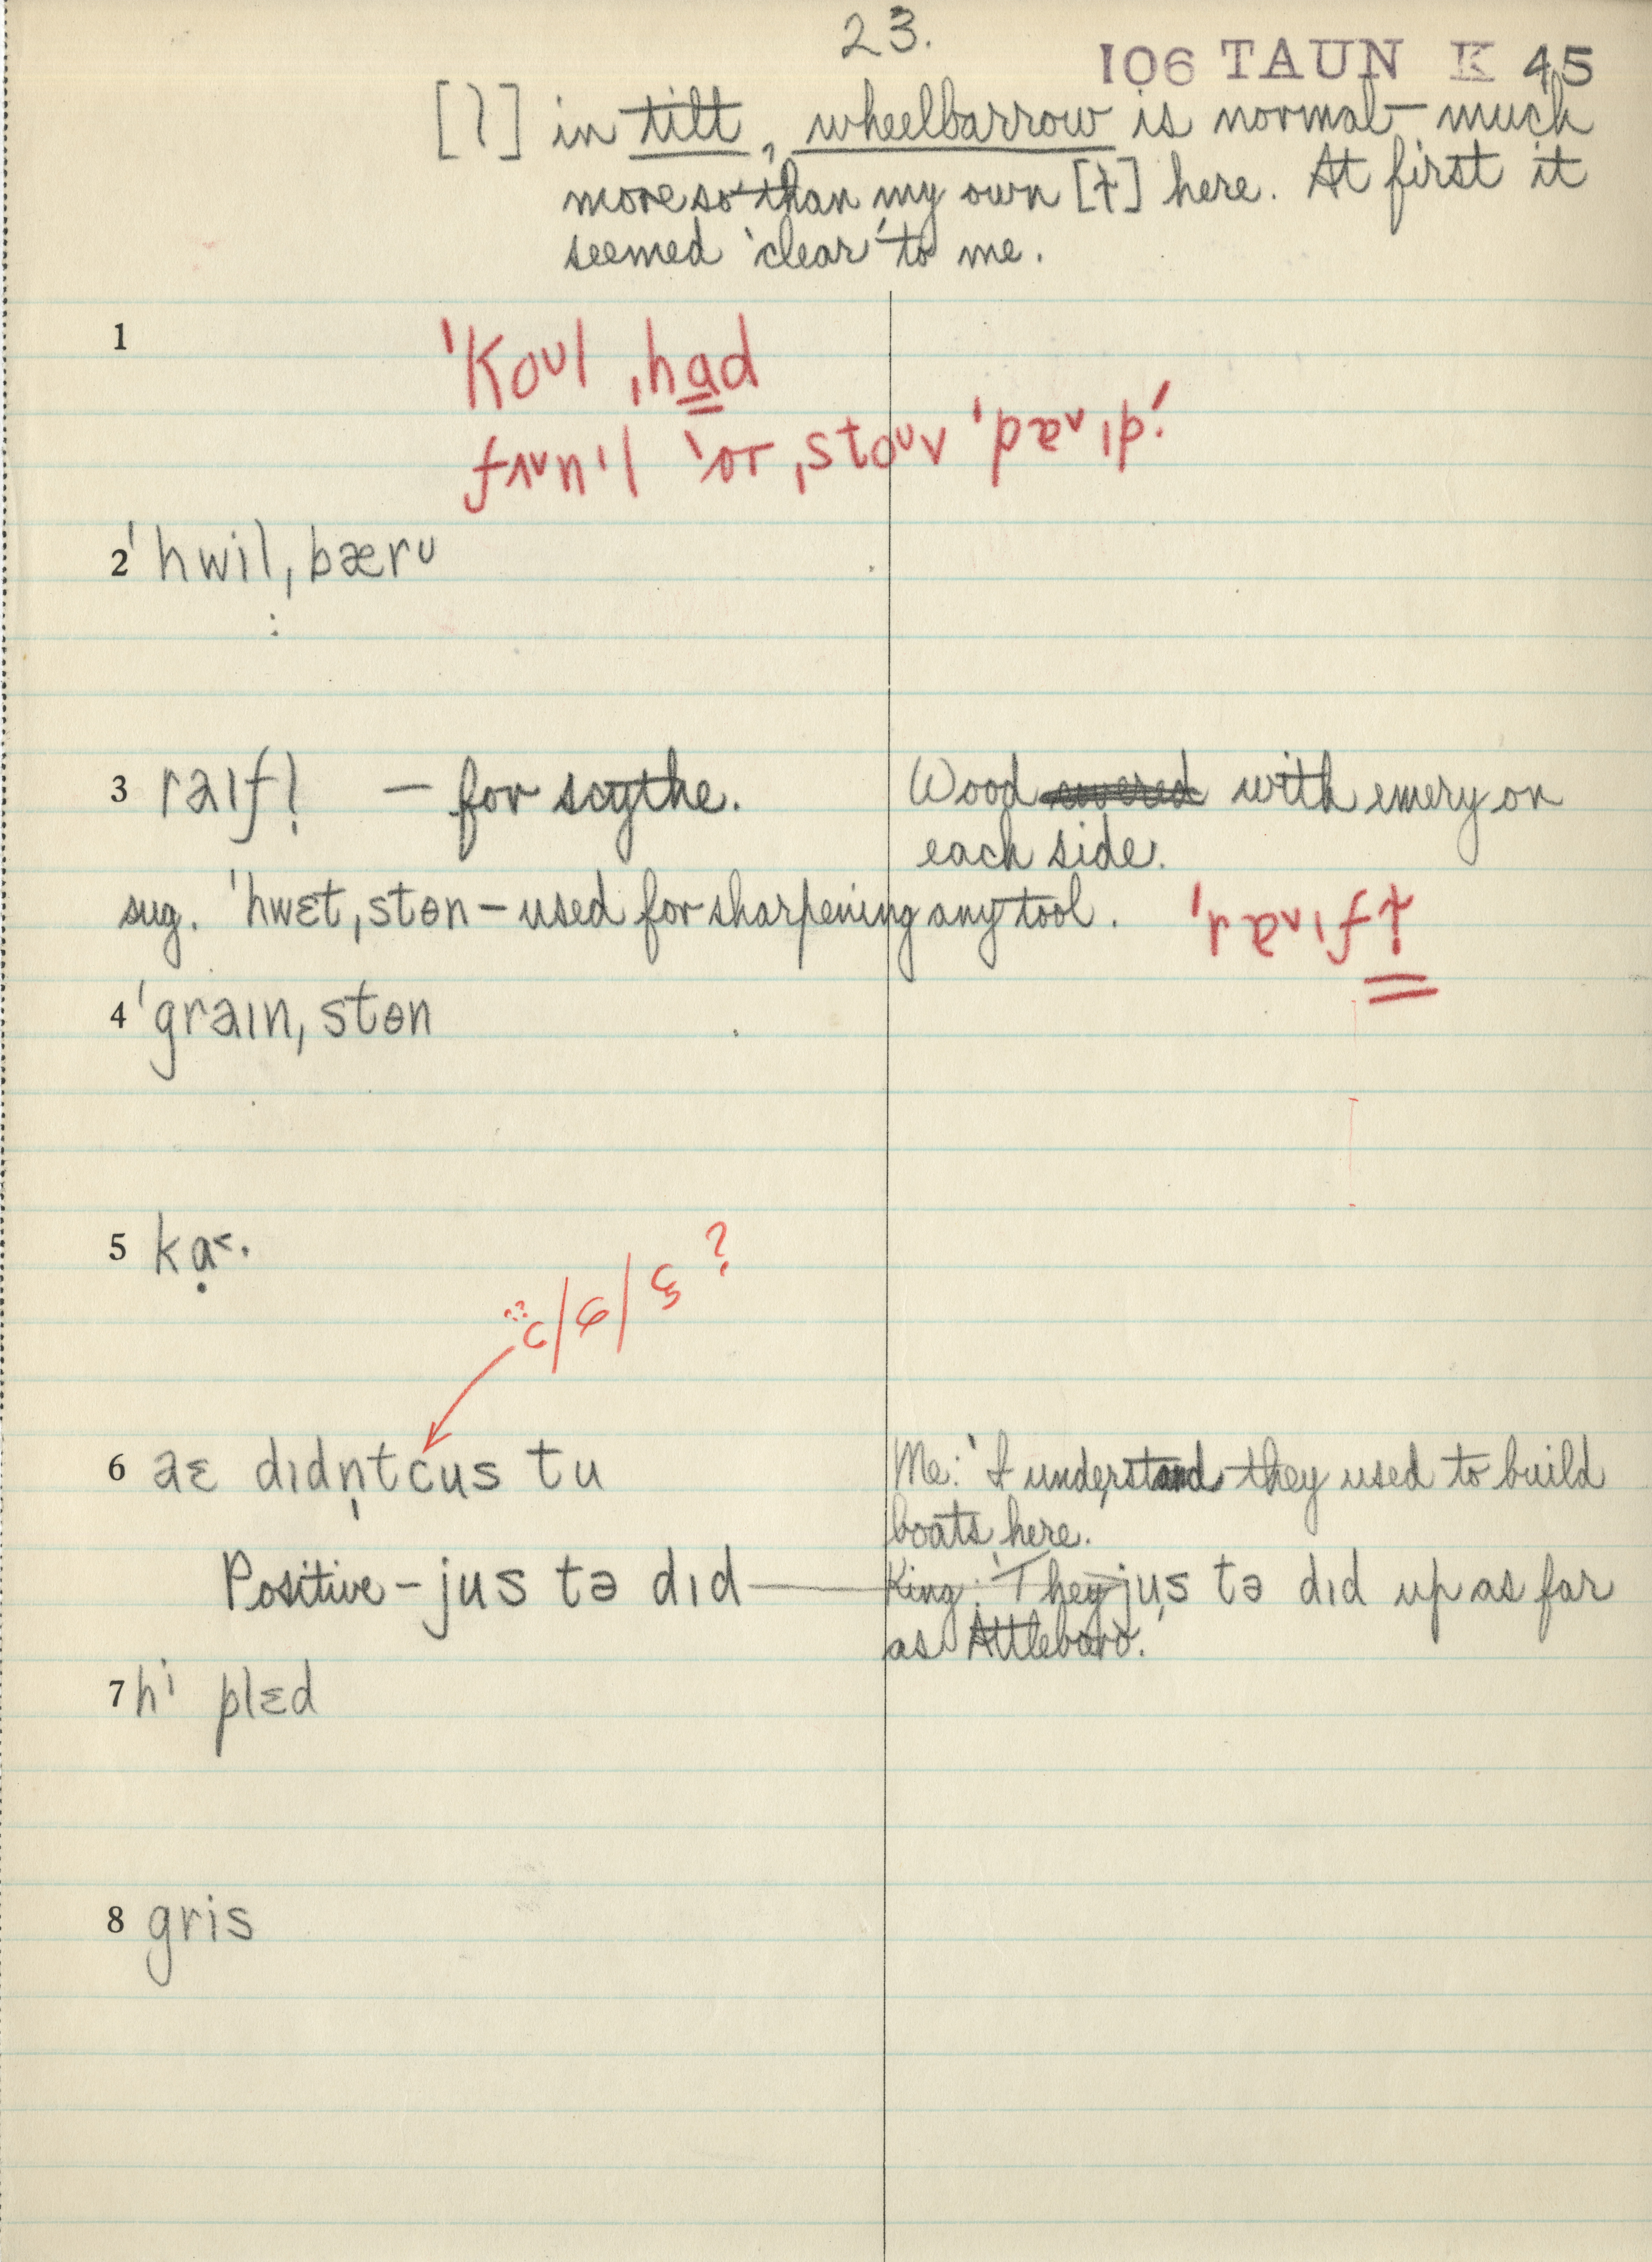 23.
106 TAUN K 45
[l] in tilt, wheelbarrow is normal – much
more so than my own [ɫ] here. At first it
seemed 'clear' to me.
1
ˈkoᴜl ˌhad
2 ˈhwilˌbærᴜ
3 raɪfl̩ – for scythe.
Wood covered with emery on
each side.
sug. ˈhwɛtˌstɵn – used for sharpening any tool.
4 ˈgraɪnˌstɵn
5 kạ˂·
c/ɕ/ ?
6 aɛ dɪdn̩tcus tu
Me: 'I understand they used to build
boats here.
Positive – jus tə dɪd
King: 'They jus tə dɪd up as far
as Attleboro.'
7 hi plɛd
8 gris